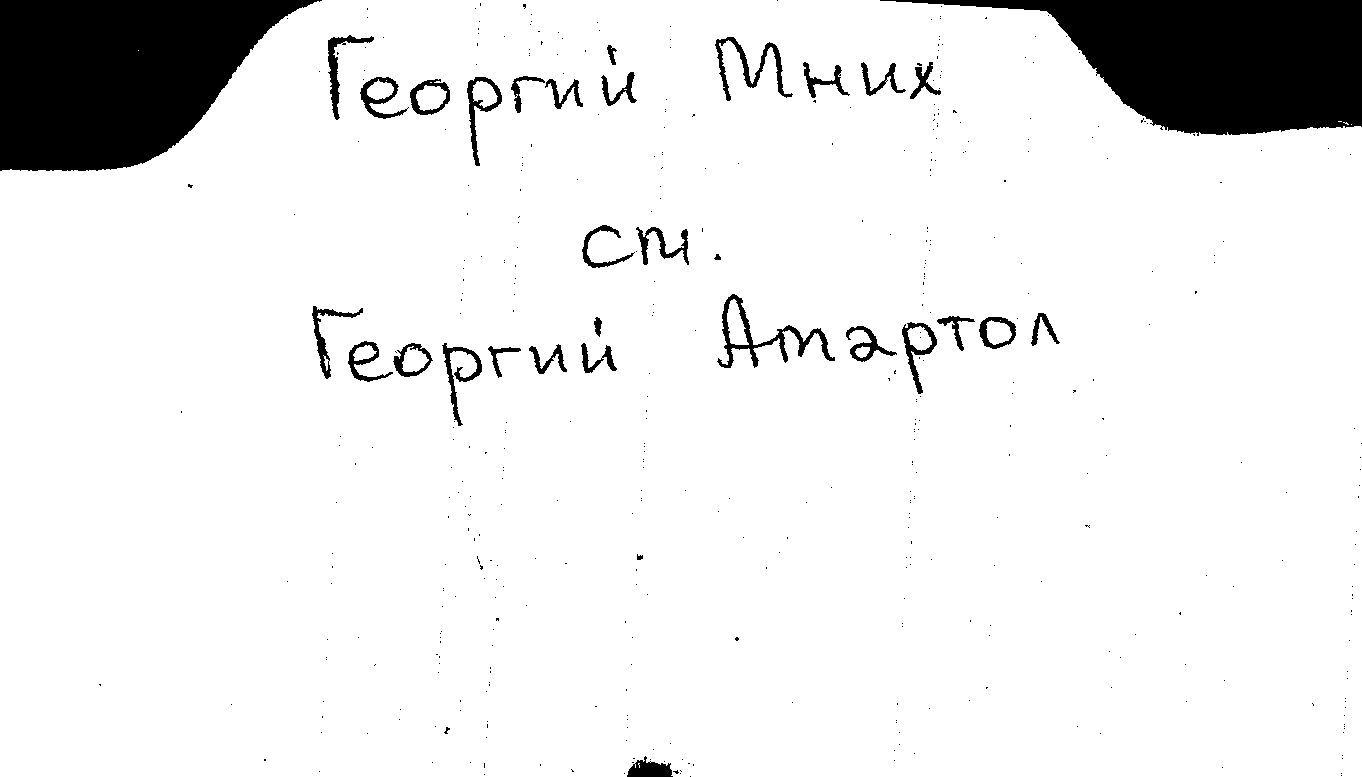 Георгий Мних
ст.
Георгий Амартол